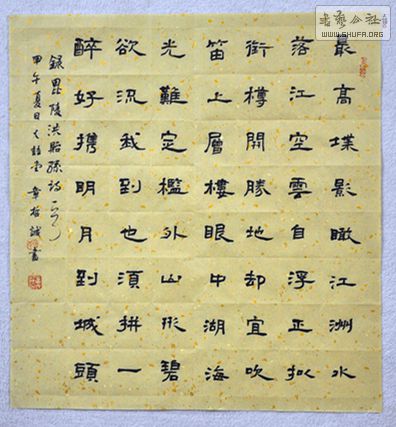 最高堞影瞰江洲水
落江空雲自浮正拟
衔樽開勝地却宜吹
笛上層樓眼中湖海
光難定檻外山形碧
欲流我到也須拼一
醉好携明月到城頭
録毘陵洪貽孫詩
甲午夏日 章哲誠 書
書藝公社
WWW.SHUFA.ORG